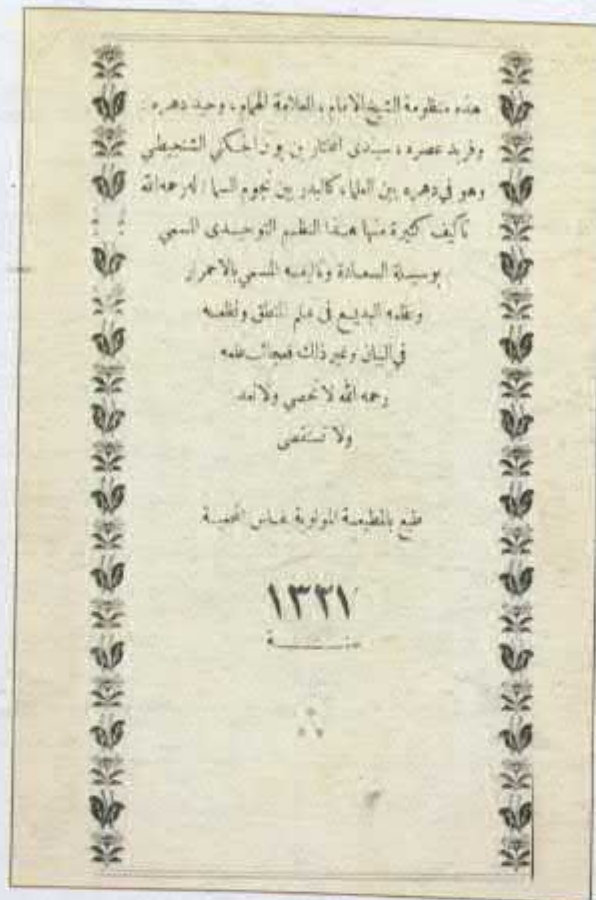 هذه منظومة الشيخ الامام ، العلامة الهمام ، وحيد دهره :
وفريد عصره ، سيدى المختار بن بون الجكنى الشنجيطى
وهو في دهره بين العلماء كالبدر بين نجوم السما : له رحمه الله
تآليف كثيرة منها هذا النظم التوحيدى المسمي
بوسيلة السعادة وتاليفه المسمي بالاحمرار
ونظمه البديع فى علم المنطق ونظمه
في البيان وغير ذالك فعجائب علمه
رحمه الله لا تحصي ولا تعد
ولا تستقصى
طبع بالمطبعة المولوية بفاس المحمية
١٣٢١
سنة